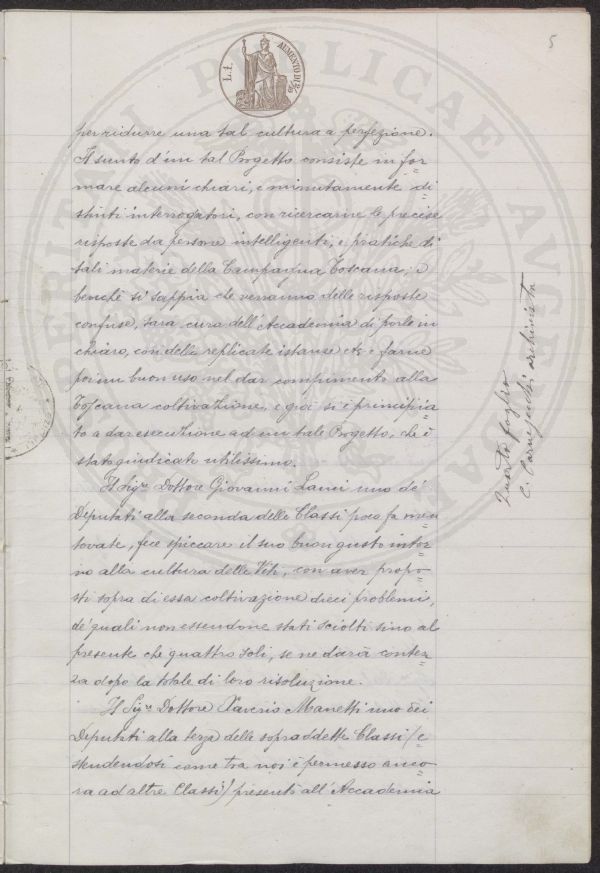 5
L. 1.
AUMENTO DI 2/10
per ridurre una tal cultura a perfezione.
Il sunto d'un tal Progetto consiste in for=
mare alcuni chiari, e minutamente di=
stinti interrogatori, con ricercarne le precise
risposte da persone intelligenti, e pratiche di
tali materie della Campagna Toscana, e
benchè si sappia che verranno delle risposte
confuse, sarà cura dell'Accademia di porle in
chiaro, con delle replicate istanze etc e farne
poi un buon uso nel dar compimento alla
Toscana coltivazione, e già si è principia
to a dar esecuzione ad un tale Progetto, che è
stato giudicato utilissimo.
Il Sigre Dottore Giovanni Lami uno de'
Deputati alla seconda delle Classi poco fa men
tovate, fece spiccare il suo buon gusto intor=
no alla cultura delle Viti, con aver propo=
sti sopra di essa coltivazione dieci problemi,
de' quali non essendone stati sciolti sino al
presente che quattro soli, se ne darà contez=
za dopo la totale di loro risoluzione.
Il Sigre Dottore Xaverio Manetti uno dei
Deputati alla terza delle sopraddette Classi (e
stendendosi come tra noi è permesso anco=
ra ad altre Classi) presentò all'Accademia
Quarto foglio
C. Carnesecchi archivista